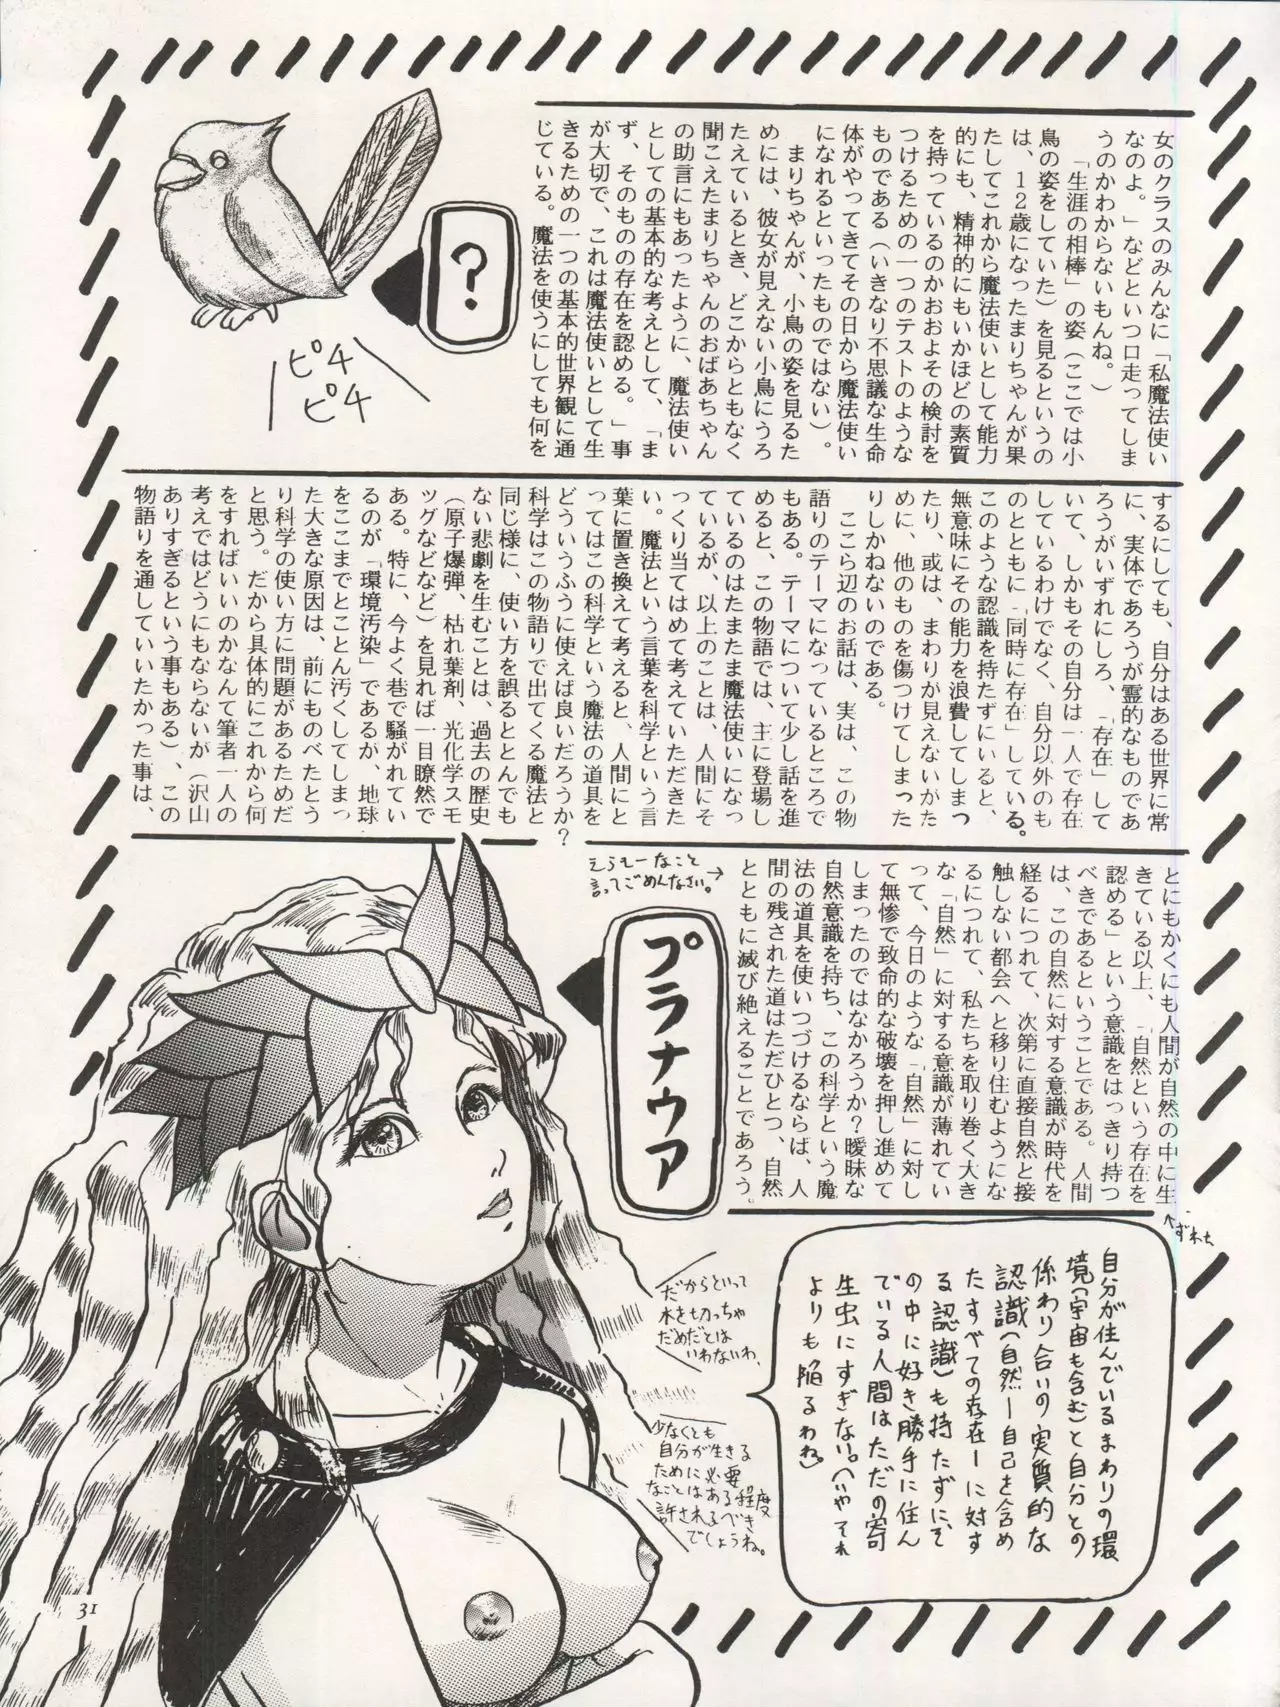 女のクラスのみんなに「私魔法使い
なのよ。」などといつ口走ってしま
うのかわからないもんね。）
「生涯の相棒」の姿（ここでは小
鳥の姿をしていた）を見るというの
は、12歳になったまりちゃんが果
たしてこれから魔法使いとして能力
的にも、精神的にもいかほどの素質
を持っているのかおおよその検討を
つけるための一つのテストのような
ものである（いきなり不思議な生命
体がやってきてその日から魔法使い
になれるといったものではない）。
まりちゃんが、小鳥の姿を見るた
めには、彼女が見えない小鳥にうろ
たえているとき、どこからともなく
聞こえたまりちゃんのおばあちゃん
の助言にもあったように、魔法使い
としての基本的な考えとして、「ま
ず、そのものの存在を認める。」事
が大切で、これは魔法使いとして生
きるための一つの基本的世界観に通
じている。魔法を使うにしても何を
？
ピチ
ピチ
するにしても、自分はある世界に常
に、実体であろうが霊的なものであ
ろうがいずれにしろ、「存在」して
いて、しかもその自分は一人で存在
しているわけでなく、自分以外のも
のとともに「同時に存在」している。
このような認識を持たずにいると、
無意味にその能力を浪費してしまっ
たり、或は、まわりが見えないがた
めに、他のものを傷つけてしまった
りしかねないのである。
ここら辺のお話は、実は、この物
語りのテーマになっているところで
もある。テーマについて少し話を進
めると、この物語では、主に登場し
ているのはたまたま魔法使いになっ
ているが、以上のことは、人間にそ
っくり当てはめて考えていただきた
い。魔法という言葉を科学という言
葉に置き換えて考えると、人間にと
ってはこの科学という魔法の道具を
どういうふうに使えば良いだろうか？
科学はこの物語りで出てくる魔法と
同じ様に、使い方を誤るととんでも
ない悲劇を生むことは、過去の歴史
（原子爆弾、枯れ葉剤、光化学スモ
ッグなどなど）を見れば一目瞭然で
ある。特に、今よく巷で騒がれてい
るのが「環境汚染」であるが、地球
をここまでとことん汚くしてしまっ
た大きな原因は、前にものべたとう
り科学の使い方に問題があるためだ
と思う。だから具体的にこれから何
をすればいいのかなんて筆者一人の
考えではどうにもならないが（沢山
ありすぎるという事もある）、この
物語りを通していいたかった事は、
とにもかくにも人間が自然の中に生
きている以上、「自然という存在を
認める」という意識をはっきり持つ
べきであるということである。人間
は、この自然に対する意識が時代を
経るにつれて、次第に直接自然と接
触しない都会へと移り住むようにな
るにつれて、私たちを取り巻く大き
な「自然」に対する意識が薄れてい
って、今日のような「自然」に対し
て無惨で致命的な破壊を押し進めて
しまったのではなかろうか？曖昧な
自然意識を持ち、この科学という魔
法の道具を使いつづけるならば、人
間の残された道はただひとつ、自然
とともに滅び絶えることであろう。
↑ずれた
えらそーなこと
言ってごめんなさい。→
プラナウア
自分が住んでいるまわりの環
境（宇宙も含む）と自分との
係わり合いの実質的な
認識（自然ー自己を含め
たすべての存在ーに対す
る認識）も持たずに、そ
の中に好き勝手に住ん
でいる人間はただの寄
生虫にすぎない。（いやそれ
よりも陥るわね）
だからといって
木を切っちゃ
だめだとは
いわないわ、
少なくとも
自分が生きる
ために必要
なことはある程度
許されるべき
でしょうね。
31